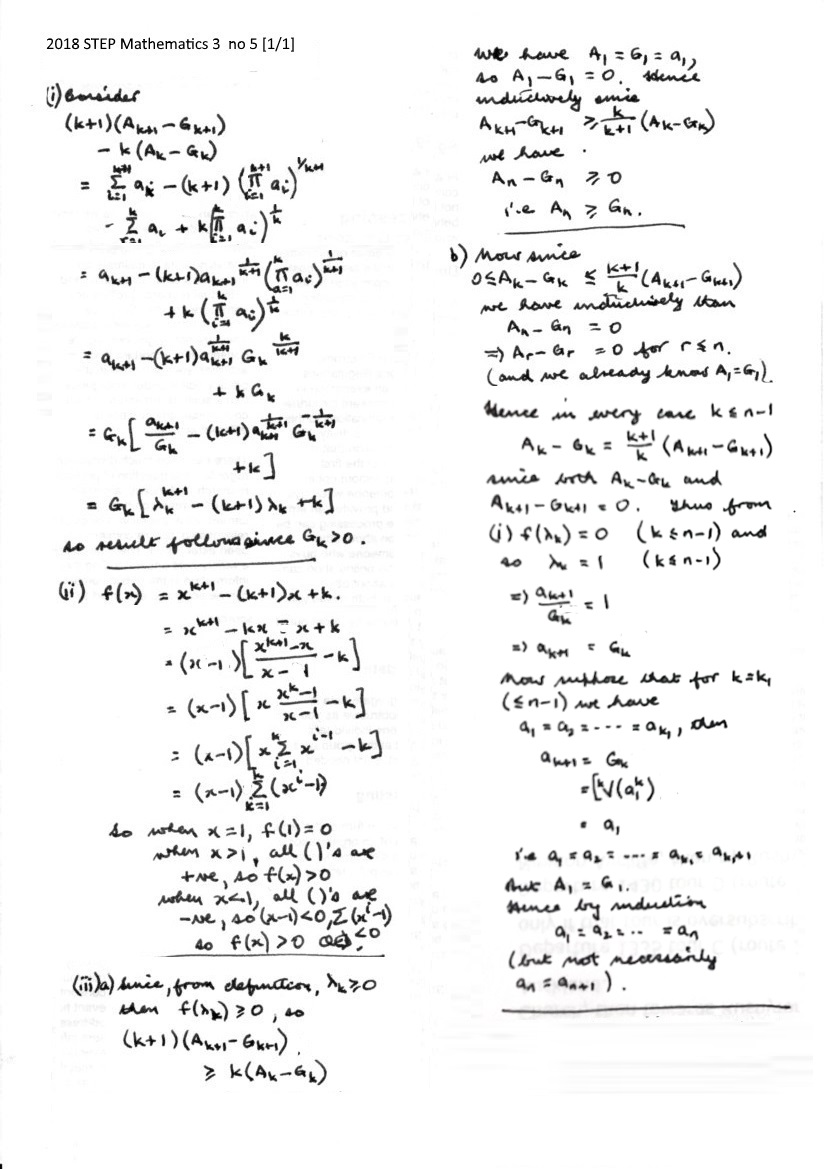 2018 STEP Mathematics 3 no 5 [1/1]
(i) Consider
(k+1)(A_{k+1} - G_{k+1})
- k(A_k - G_k)
= \sum_{i=1}^{k+1} a_i - (k+1) (\prod_{i=1}^{k+1} a_i)^{1/k+1}
- \sum_{r=1}^{k} a_i + k(\prod_{i=1}^{k} a_i)^{1/k}
= a_{k+1} - (k+1)a_{k+1}^{1/k+1} (\prod_{a=1}^{k} a_i)^{1/k+1}
+ k (\prod_{i=1}^{k} a_i)^{1/k}
= a_{k+1} - (k+1)a_{k+1}^{1/k+1} G_k^{k/k+1}
+ k G_k
= G_k [ a_{k+1}/G_k - (k+1) a_{k+1}^{1/k+1} G_k^{-1/k+1}
+ k ]
= G_k [λ_k^{k+1} - (k+1) λ_k + k]
so result follows since G_k > 0.
(ii) f(x) = x^{k+1} - (k+1)x + k.
= x^{k+1} - kx - x + k
= (x-1)[ (x^{k+1} - x)/(x-1) - k]
= (x-1)[ x (x^k - 1)/(x-1) - k]
= (x-1)[x \sum_{i=1}^{k} x^{i-1} - k]
= (x-1) \sum_{k=1}^{k} (x^i - 1)
So when x = 1, f(1) = 0
when x > 1, all ()'s are
+ve, so f(x) > 0
when x < 1, all ()'s are
-ve, so (x-1) < 0, Σ(x^i - 1)
< 0
so f(x) > 0
(iii) a) Since, from definition, λ_k ≥ 0
then f(λ_k) ≥ 0, so
(k+1)(A_{k+1} - G_{k+1})
≥ k(A_k - G_k)
we have A_1 = G_1 = a_1,
so A_1 - G_1 = 0. Hence
inductively since
A_{k+1} - G_{k+1} ≥ k/k+1 (A_k - G_k)
we have
A_n - G_n ≥ 0
i.e A_n ≥ G_n.
b) Now since
0 ≤ A_k - G_k ≤ k+1/k (A_{k+1} - G_{k+1})
we have inductively than
A_n - G_n = 0
=> A_r - G_r = 0 for r ≤ n.
(and we already know A_1 = G_1).
Hence in every case k ≤ n-1
A_k - G_k = k+1/k (A_{k+1} - G_{k+1})
since both A_k - G_k and
A_{k+1} - G_{k+1} = 0. Thus from
(i) f(λ_k) = 0 (k ≤ n-1) and
so λ_k = 1 (k ≤ n-1)
=> a_{k+1}/G_k = 1
=> a_{k+1} = G_k
Now suppose that for k = k_1
(≤ n-1) we have
a_1 = a_2 = ---- = a_{k_1}, then
a_{k+1} = G_k
= [^k√(a_1^k)
= a_1
i.e a_1 = a_2 = ---- = a_{k_1} = a_{k_1+1}
But A_1 = G_1.
Hence by induction
a_1 = a_2 = .. = a_n
(but not necessarily
a_n = a_{n+1}).